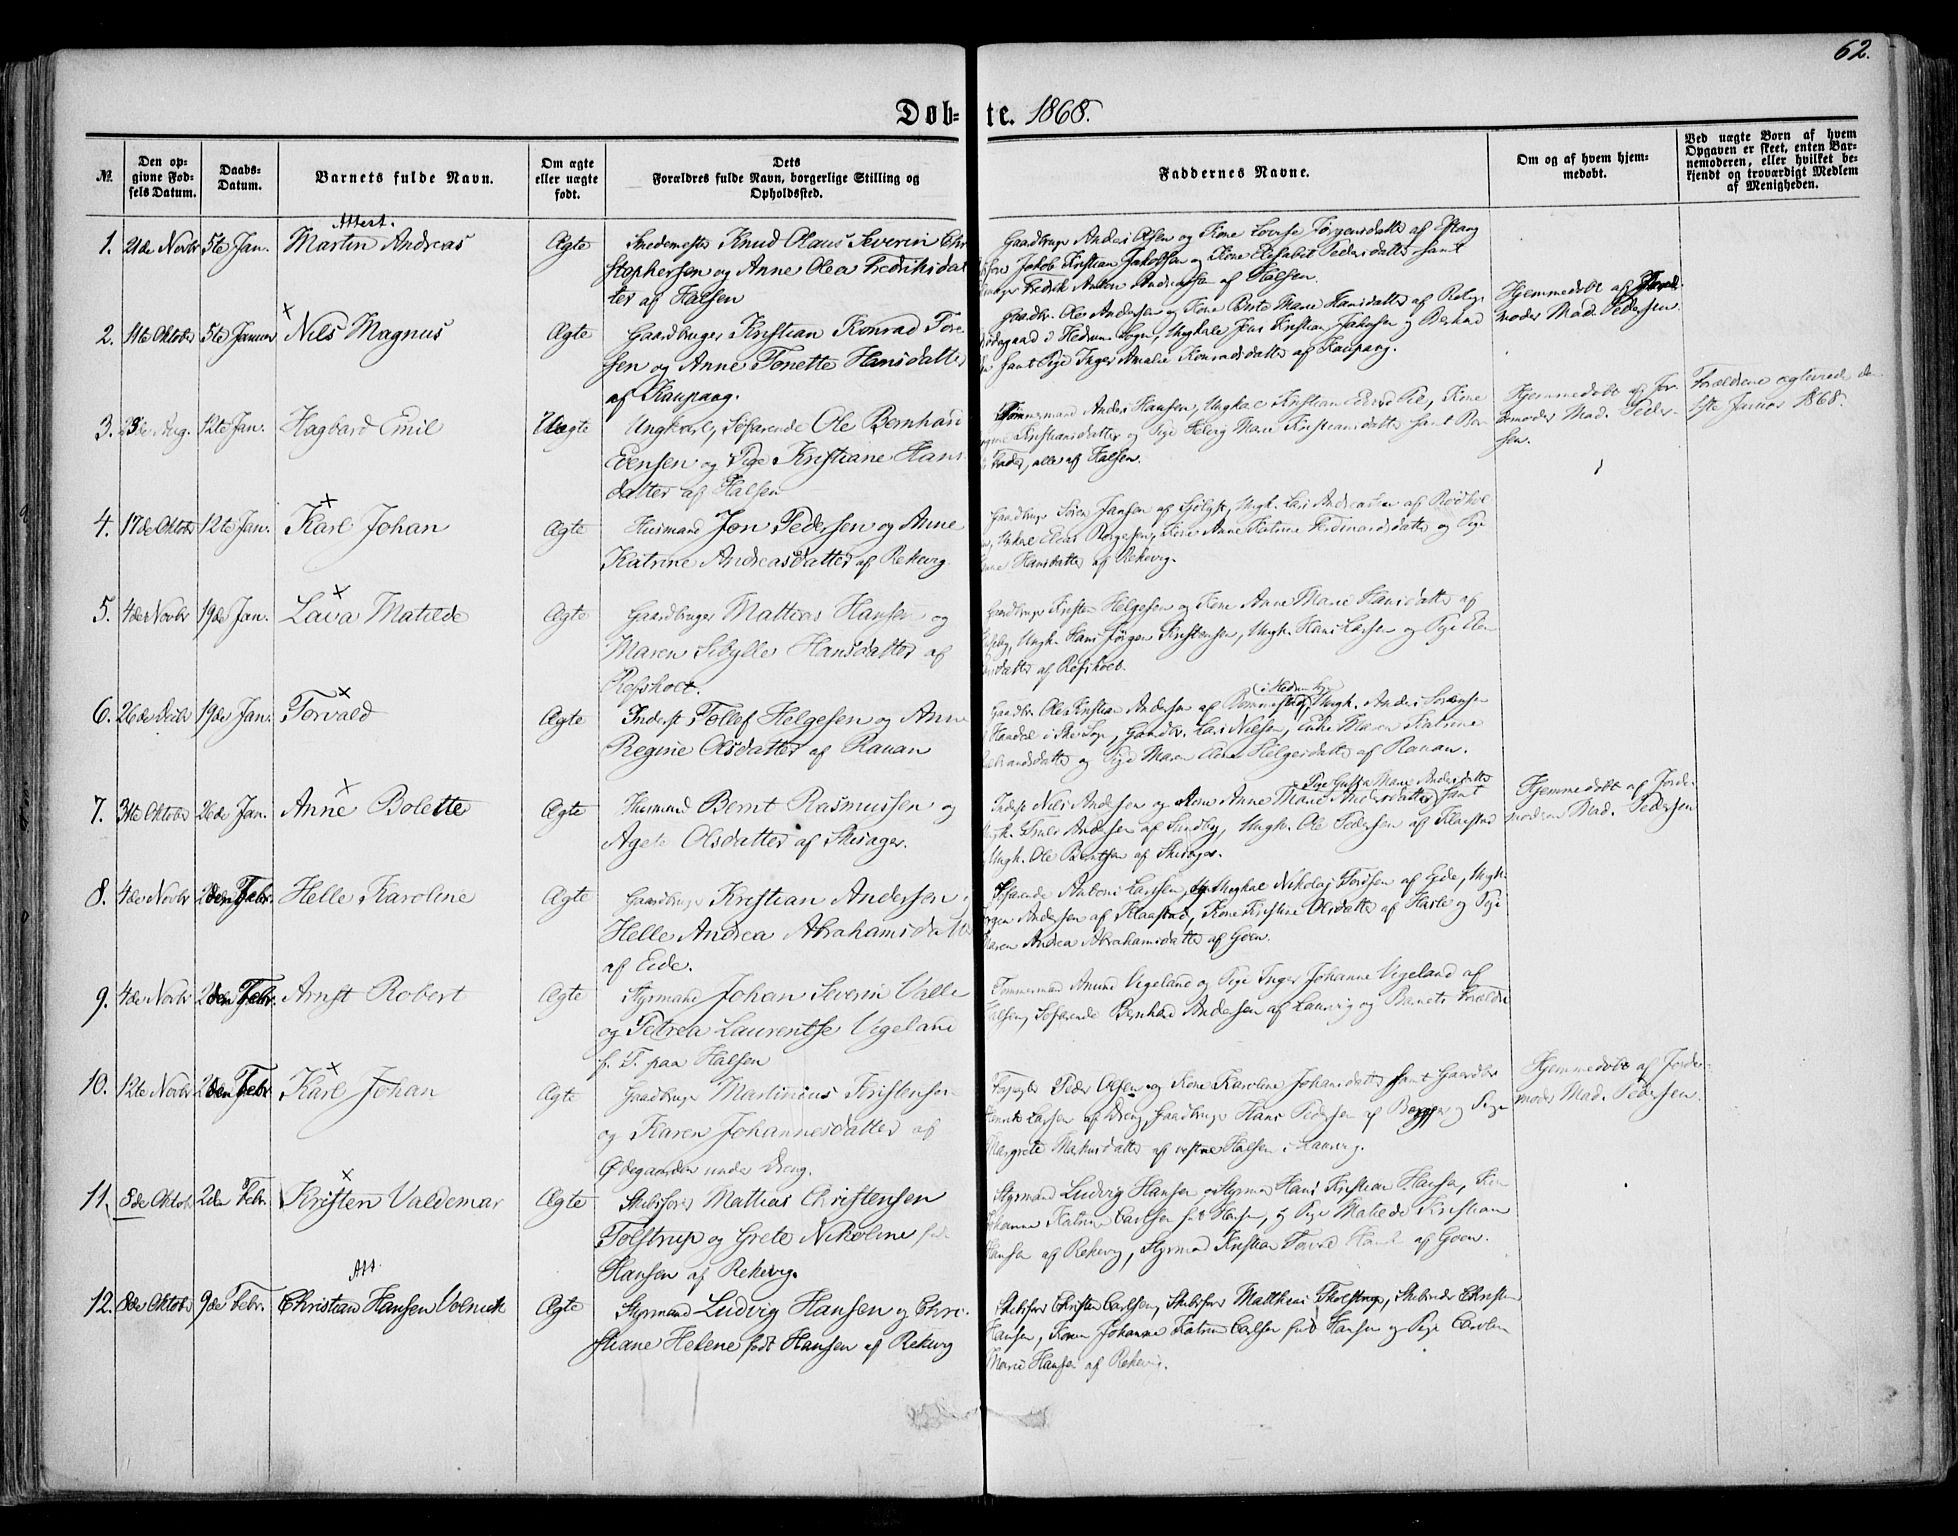 62.
Døb-te. 1868.
№.
Den opgivne Fødsels Datum.
Daabs-Datum.
Barnets fulde Navn.
Om ægte eller uægte født.
Dets Forældres fulde Navn, borgerlige Stilling og Opholdssted.
Faddernes Navne.
Om og af hvem hjemmedøbt.
Ved uægte Børn af hvem Opgaven er skeet, enten Barnemoderen, eller hvilket bekjendt og troværdigt Medlem af Menigheden.
Attest.
1. 21de Novbr 5te Jan. Martin Andreas Ægte Smedemester Knud Olaus Severin Chri
stophersen og Anne Olea Fredriksdat
ter af Halsen
Gaardbruger Anders Olsen og Kone Lovise Jørgensdatter af
Jakob Kristian Jakobsen og Kone Elisabet Pedersdatter samt
Fredrik Anton Andreassen af Halsen.
2. 11te Oktober 5te Januar Nils Magnus Ægte Gaardbruger Kristian Konrad Tore
sen og Anne Tonette Hansdatter
af Kaupang.
Gaardbr. Ole Andersen og Kone Berte Marie Hansdatter af
i Hedrum Sogn, Ungkale Jens Kristian Jakobsen og
samt Pige Inger Amalie Konradsdatter af Kaupang.
Hjemmedøbt af Jorde
moder Mad. Pedersen.
3. 23de Aug. 12te Jan. Hagbard Emil Uægte Ungkarl, Søfarende Ole Bernhard
Evensen og Pige Kristiane Hans
datter af Halsen
Tømmermand Anders Hansen, Ungkal Kristian, Kone
Kristiansdatter og Pige Helvig Marie Kristiansdatter samt Bar
Fader, alle af Halsen.
Hjemmedøbt af Jor
demoder Mad. Peder
sen.
Forældrene ægteviede den
1ste Januar 1868.
4. 17de Oktober 12te Jan. Karl Johan Ægte Husmand Jon Pedersen og Anne
Katrine Andreasdatter af Rekevig
Gaardbruger Søren Jansen af, Ungk. Lars Andreassen af
Ungkal Elias Børgesen, Kone Anne Katrine Ferdinandsdatter og Pige
Hansdatter af Rekevig.
5. 4de Novbr 19de Jan. Lava Matilde Ægte Gaardbruger Mattias Hansen og
Maren Sibylle Hansdatter af
Refsholt.
Gaardbruger Kristen Helgesen og Kone Anne Marie Hansdatter af
Ungk. Hans Jørgen Kristensen, Ungk. Hans Larsen og Pige
datter af Refsholt.
6. 26de Decbr 19de Jan. Torvald Ægte Inderst Tollef Helgesen og Anne
Regine Olsdatter af Rauan
Gaardbr. Ole Kristian Andersen af (i Hedrum Sogn), Ungk. Anders Sørensen
Gaardbr. Lars Nielsen, Enke Maren Katrine
og Pige Maren Helgesdatter af Rauan.
7. 31te Oktober 26de Jan. Anne Bolette Ægte Husmand Bernt Rasmussen og
Agete Olsdatter af Skisager.
Pige Gusta Marie Andersdatter
Inderst Nils Andersen og Kone Anne Marie Andersdatter samt
Ungk. Andersen af Sundby, Ungk. Ole Pedersen af Klaastad
Ungk. Ole Berntsen af Skisager.
Hjemmedøbt af Jorde
moderen Mad. Pedersen
8. 4de Novbr 2den Febr. Helle Karoline Ægte Gaardbruger Kristian Andersen
Helle Andrea Abrahamsdatter
af Eide.
Søfarende Anton Larsen, Ungkal Nikolaj Torsen af Eide, Ungk.
Jørgen Andersen af Klaastad, Kone Kristine Olsdatter af Hasle og Pige
Maren Andrea Abrahamsdatter af Goen.
9. 4de Novbr 2den Febr. Arnst Robert Ægte Styrmand Johan Severin Valle
og Petrea Laurentse Vigeland
f. T. paa Halsen
Tømmermand Amund Vigeland og Pige Inger Johanne Vigeland af
Halsen, Søfarende Bernhard Andersen af Laurvig og Barnets Forældre
10. 12te Novbr 2den Febr. Karl Johan Ægte Gaardbruger Martinius Kristensen
og Karen Johannesdatter af
Ødegaarden under Dreng.
Peder Olsen og Kone Karoline Johansdatter samt Gaardbr
Henrik Larsen af Dreng, Gaardbruger Hans Pedersen af og Pige
Margrete Markusdatter af vestre Halsen i Laurvig.
Hjemmedøbt af Jorde
moder Mad. Pedersen.
11. 8de Oktober 2den Febr. Kristen Valdemar Ægte Skibsfører Mattias Christensen
Tolstrup og Grete Nikoline født
Hansen af Rekevig.
Styrmand Ludvig Hansen og Styrmand Hans Kristian Hansen, Kone
Johanne Katrine Carlsen født Hansen, og Pige Matilde Kristiane
Hansen af Rekevig, Styrmand Kristian af Goen.
Att.
12. 8de Oktober 9de Febr. Christian Hansen Ægte Styrmand Ludvig Hansen og Chri
stiane Helene født Hansen af Rekevig
Skibsfører Christen Carlsen, Skibsfører Matthias Tholstrup, Christen
Hansen, Kone Johanne Katrine Carlsen født Hansen og Pige
Marie Hansen af Rekevig.